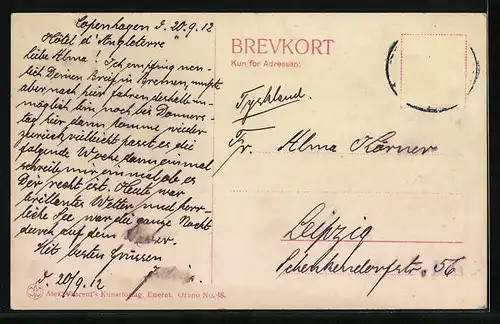 Copenhagen d. 20.9.12
Hôtel d'Angleterre
Liebe Alma! Ich empfing neu-
lich Deinen Brief in Bremen, musste
aber noch hier fahren deshalb un-
möglich bin noch bis Donners-
tag hier dann komme wieder
zurück, vielleicht passt es die
folgende Woche dann einmal
schreib mir einmal ob es
Dir recht ist. Heute war
brillantes Wetter und herr-
liche See war die ganze Nacht
durch auf dem
Mit besten Grüssen
d. 20/9.12
BREVKORT
Kun for Adressen:
Tyskland.
Fr. Alma Körner
Leipzig
Schenkendorfstr. 56
Alex Vincent's Kunstforlag. Eneret. Oresu No. 48.